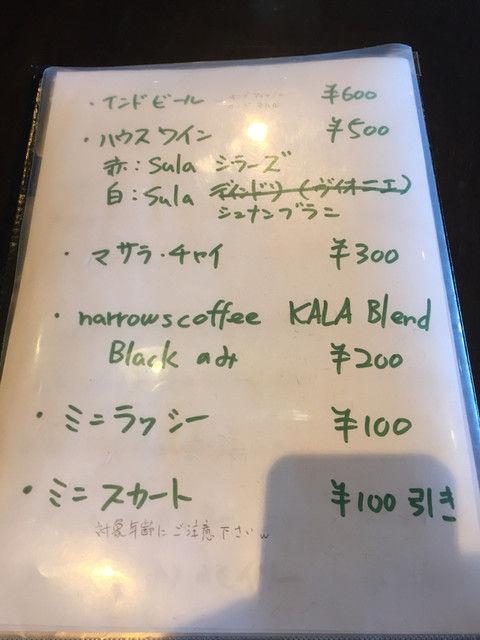 ・インドビール ¥600
・ハウスワイン ¥500
赤:Sula シラーズ
白:Sula (ヴィオニエ)
シュナンブラン
・マサラ・チャイ ¥300
・narrowscoffee KALA Blend
Black のみ ¥200
・ミニラッシー ¥100
・ミニスカート ¥100引き
対象年齢にご注意下さいw